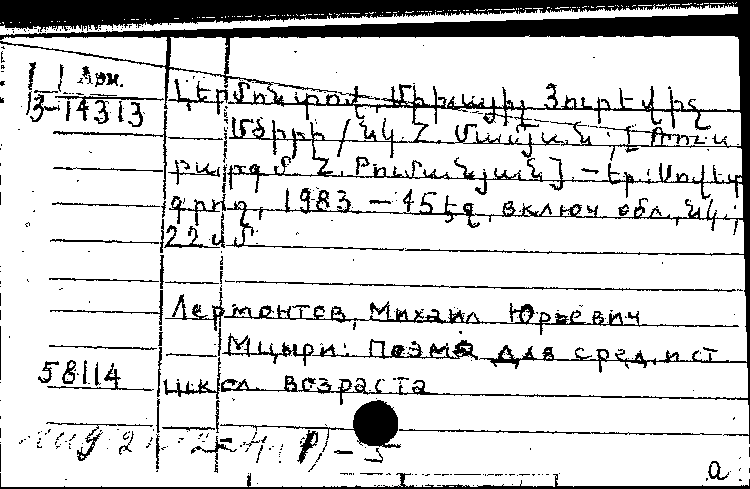 Арм.
3-14313
Լերմոնտով, Միխայիլ Յուրևիչ
Մծիրի / նկ. Հ. Մամյան ; [Առուս.
թարգմ. Հ. Թումանյան] . – Եր.: Սովետ.
գրող, 1983. – 45 էջ, включ. обл., նկ.;
22 սմ
Лермонтов, Михаил Юрьевич
Мцыри: Поэма для сред. и ст.
58114 школ. возраста
а